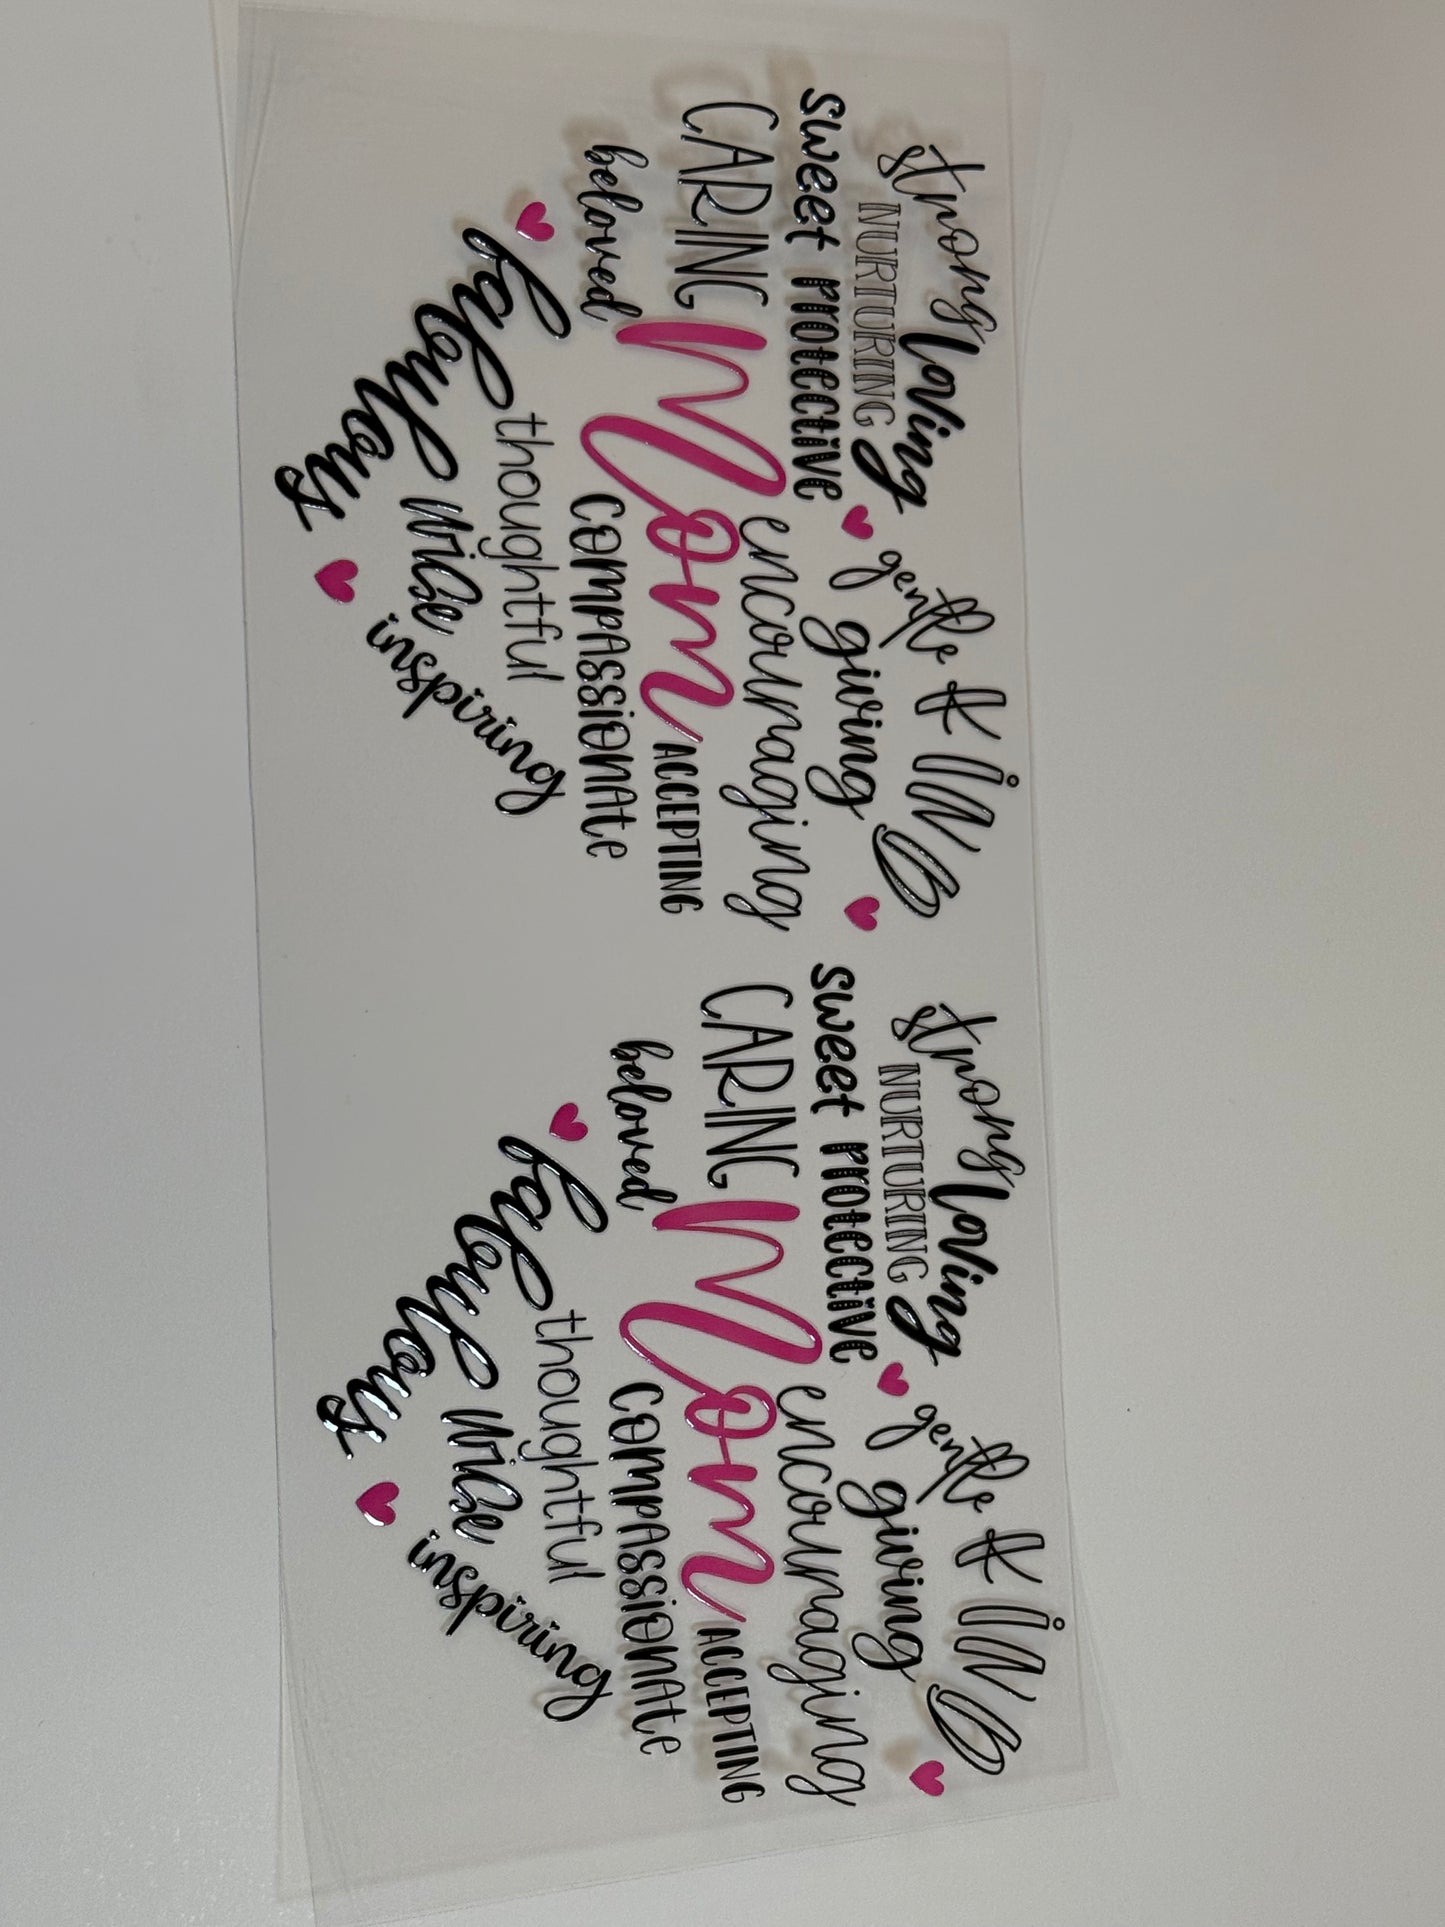 strong loving gentle KiND
NURTURING
sweet PROTECTiVE giving
CARING encouraging
Mom ACCEPTING
beloved COMPASSiONATE
thoughtful
fabulous wise inspiring
strong loving gentle KiND
NURTURING
sweet PROTECTiVE giving
CARING encouraging
Mom ACCEPTING
beloved COMPASSiONATE
thoughtful
fabulous wise inspiring